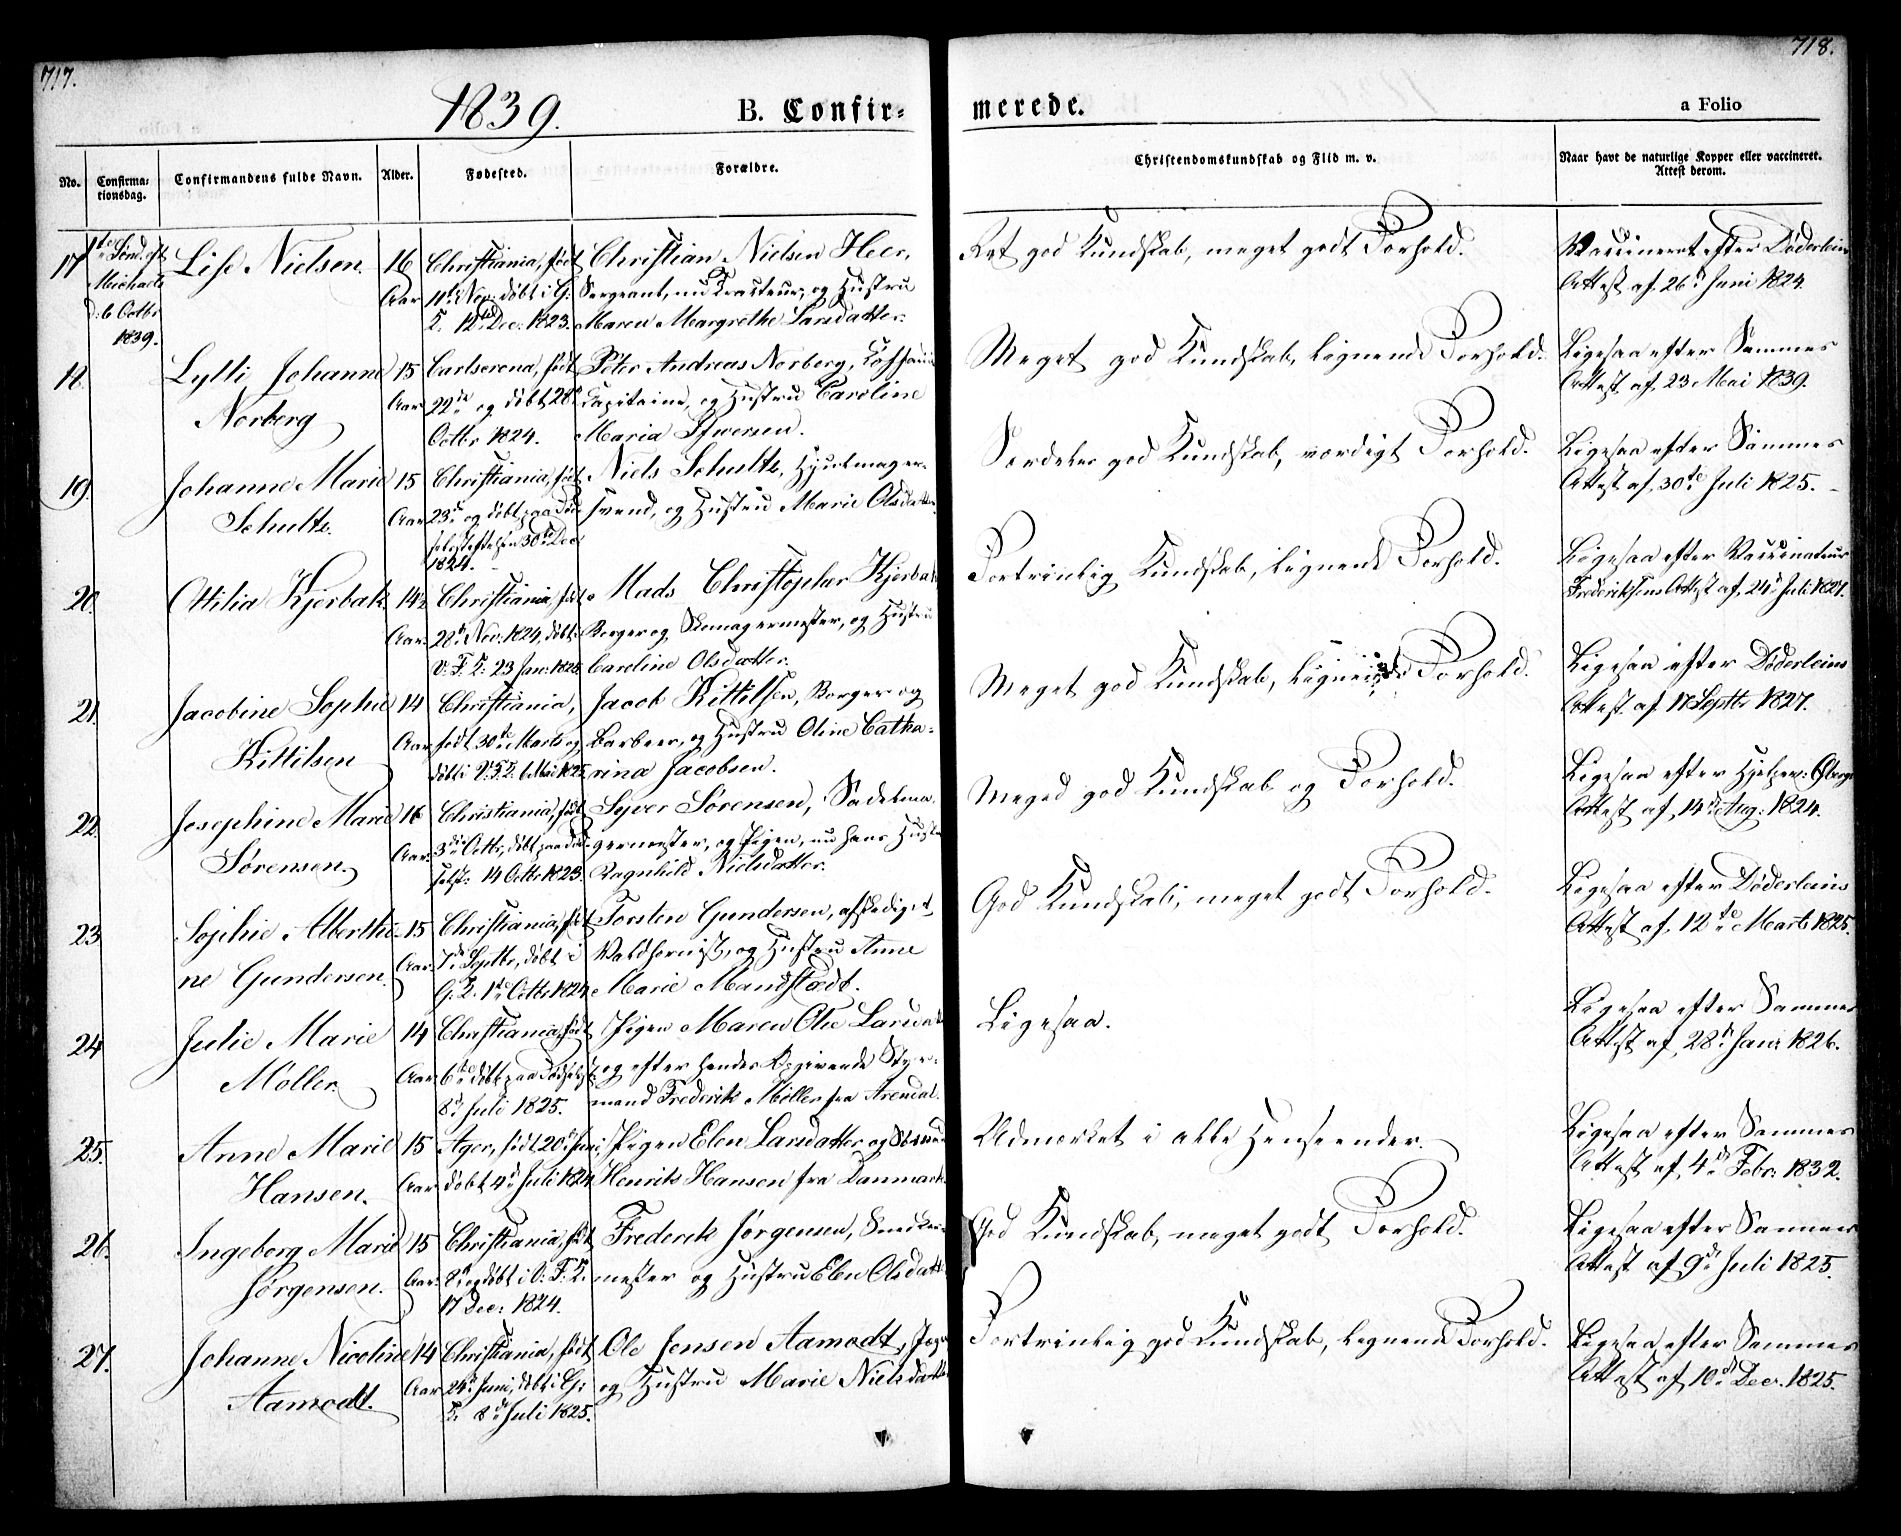 717.
718.
1839.
B. Confir-
merede.
a Folio
No.
Confirma-
tionsdag.
Confirmandens fulde Navn.
Alder.
Fødested.
Forældre.
Christendomskundskab og Flid m. v.
Naar havt de naturlige Kopper eller vaccineret.
Attest derom.
17
1te Sønd. eft
Michaeli
d: 6 Octbr
1839.
Lise Nielsen.
16
Aar
Christiania, født
11te Nov: døbt i G:
K. 12te Dec: 1823.
Christian Nielsen Heer,
Sergeant, nu og Hustru
Maren Margrethe Larsdatter.
Ret god Kundskab, meget godt Forhold.
Vaccineret efter Døderleins
Attest af 26de Juni 1824.
18.
Lylli Johanne
Norberg
15
Aar
Carlscrona, født
22de og døbt 28de
Octbr 1824.
Peter Andreas Norberg,
Capitaine, og Hustru Caroline
Maria
Meget god Kundskab, lignende Forhold.
Ligesaa efter Sammes
Attest af 23 Mai 1839.
19.
Johanne Marie
Schultz.
15
Aar
Christiania, født
23de og døbt paa Fød-
selsstiftelsen 30te Dec
1824.
Niels Schultz, Hjulmager-
svend, og Hustru Marie Olsdatter.
Særdeles god Kundskab, værdigt Forhold.
Ligesaa efter Sammes
Attest af 30te Juli 1825.
20.
Ottilia Kjerbak
14½
Aar
Christiania, født
28de Nov: 1824, døbt i
V: F. K: 23 Jan: 1825.
Mads Christopher Kjerbak
Borger og Skomagermester, og Hustru
Caroline Olsdatter.
Fortrinlig Kundskab, lignende Forhold.
Ligesaa efter Vaccinateur
Frederiksens Attest af 24de Juli 1827.
21.
Jacobine Sophie
Kittilsen
14
Aar
Christiania,
født 30te Marts og
døbt i V. F. K. 1 Mai 1825
Jacob Kittilsen, Borger og
Barbeer, og Hustru Oline Catha-
rina Jacobsen.
Meget god Kundskab, lignende Forhold.
Ligesaa efter Døderleins
Attest af 17 Septbr 1827.
22.
Josephine Marie
Sørensen.
16
Aar.
Christiania, født
3die Octbr, døbt paa Fød-
selsst: 14 Octbr 1823.
Syver Sørensen, Sadelma-
germester, og Pigen, nu hans Hustru
Ragnhild Nielsdatter.
Meged god Kundskab og Forhold.
Ligesaa efter Hjelpepr: Obergs
Attest af 14de Aug: 1824.
23
Sophie Alberthi-
ne Gundersen.
15
Aar
Christiania, født
7de Septbr, døbt i
G. K. 1te Octbr 1824
Torsten Gundersen, afskediget
Valdhornist, og Hustru Anne
Marie Mandstædt.
God Kundskab, meget godt Forhold.
Ligesaa efter Døderleins
Attest af 12te Marts 1825.
24
Julie Marie
Møller.
14
Aar
Christiania, født
6te døbt paa Fødselsst.
8de Juli 1825.
Pigen Maren Olie Larsdatter
og efter hendes Opgivende Styr-
mand Frederik Møller fra Arendal.
Ligesaa.
Ligesaa efter Sammes
Attest af 28de Janr 1826.
25.
Anne Marie
Hansen.
15
Aar
Ager, født 20de Juni
døbt 4de Juli 1824
Pigen Elen Larsdatter og
Henrik Hansen fra Danmark.
Udmærket i alle Henseender.
Ligesaa efter Sammes
Attest af 4de Febr: 1832.
26.
Ingeborg Marie
Jørgensen.
15
Aar.
Christiania, født
8de og døbt i V: F: K.
17 Dec: 1824.
Frederik Jørgensen, Snedker-
mester og Hustru Elen Olsdatter
God Kundskab, meget godt Forhold.
Ligesaa efter Sammes
Attest af 9de Juli 1825.
27.
Johanne Nicoline
Aamodt.
14
Aar
Christiania, født
24de Juni, døbt i G:
K. 8de Juli 1825.
Ole Jensen Aamodt,
og Hustru Marie Nielsdatter
Fortrinlig god Kundskab, lignende Forhold.
Ligesaa efter Sammes
Attest af 10de Decr. 1825.